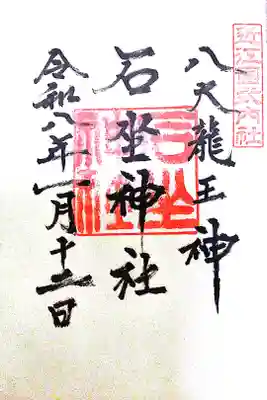 八大龍王神
石坐神社
令和八年一月十二日